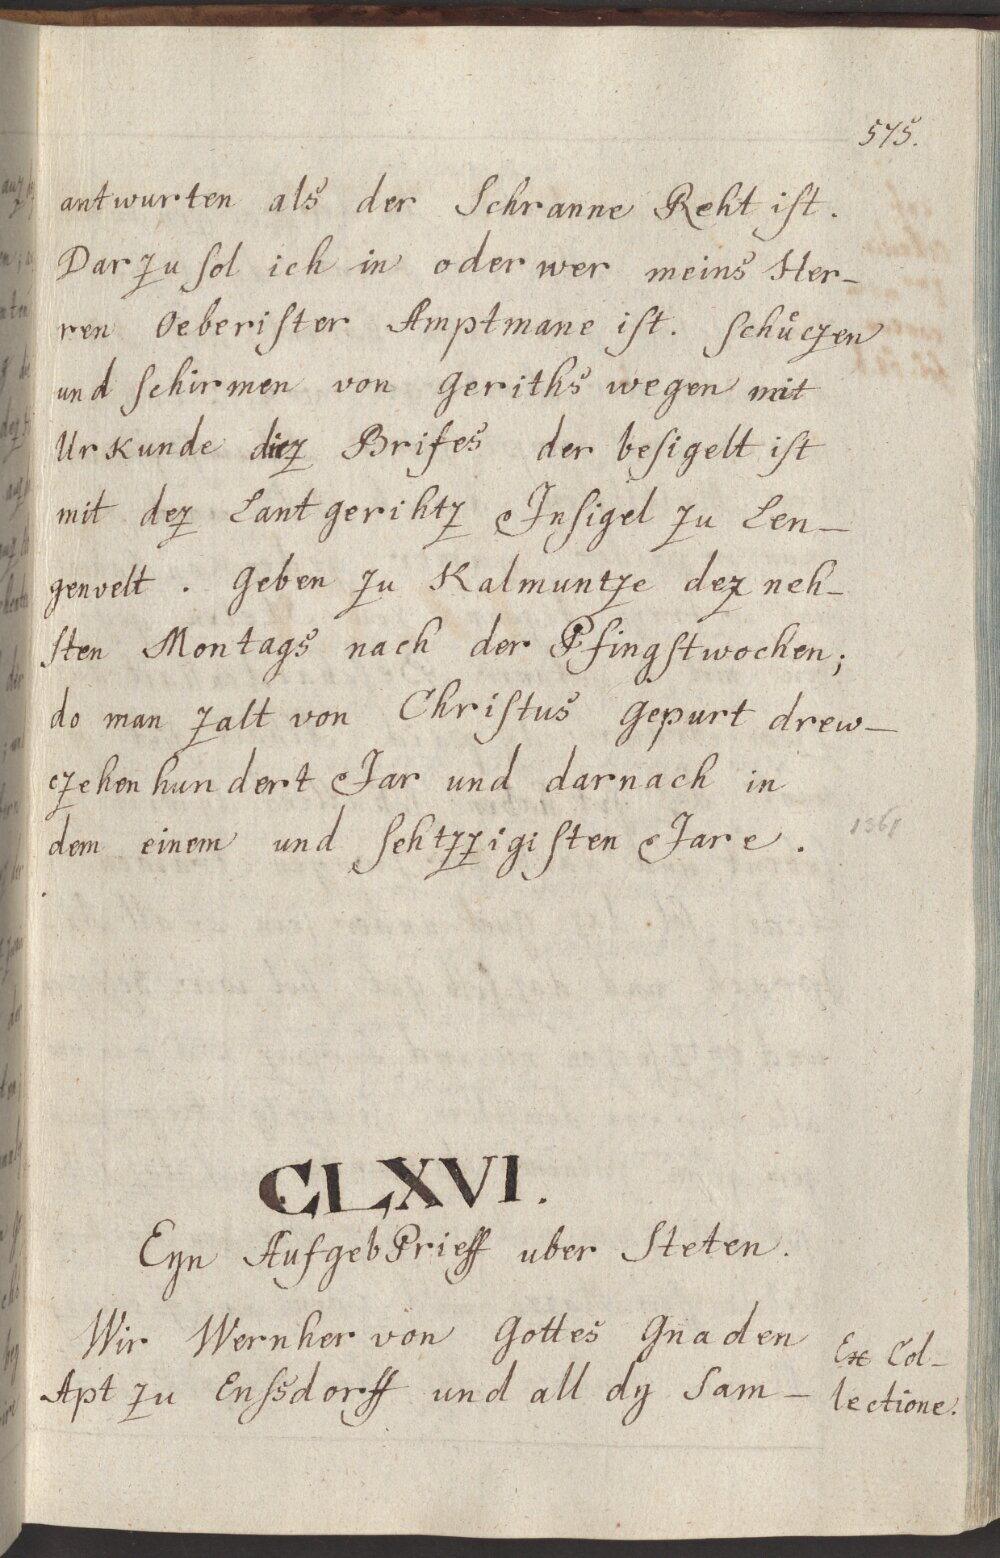 575.
antwurten als der Schranne Reht ist.
Darzu sol ich in oder wer meins Her-
ren Oeberister Amptmane ist. schüczen
und schirmen von geriths wegen mit
Urkunde diez Brifes der besigelt ist
mit dez Lantgerihtz Insigel zu Len-
genvelt. Geben zu Kalmuntze dez neh-
sten Montags nach der Pfingstwochen;
do man zalt von Christus gepurt drew-
czehenhundert Jar und darnach in
dem einem und sehtzzigisten Jare.
1361
CLXVI.
Eyn AufgebPrieff uber Steten.
Wir Wernher von Gottes Gnaden
Apt zu Enssdorff und all dy Sam-
Ex Col-
lectione.